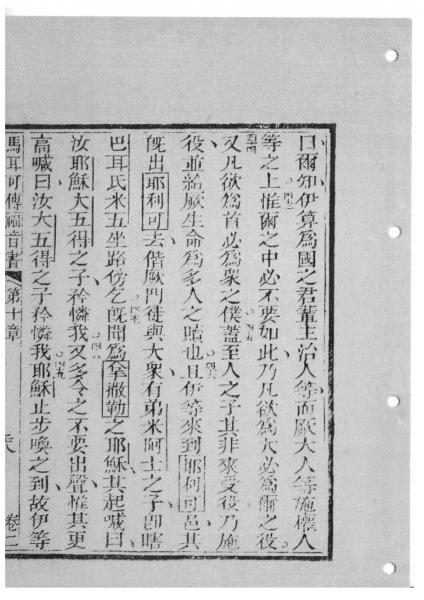 曰爾知伊算爲國之君輩主治人等而厥大人等施權人
四三
等之上惟爾之中必不要如此乃凡欲爲大必爲爾之役
四四
又凡欲爲首必爲衆之僕蓋至人之子其非來受役乃施
四五
役並給厥生命爲多人之贖也且伊等來到耶利可邑其
四六
旣出耶利可去偕厥門徒與大衆有弟米阿士之子卽瞎
巴耳氏米五坐路傍乞旣聞爲拿撒勒之耶穌其起喊曰
四七
汝耶穌大五得之子矜憐我又多令之不要出聲惟其更
四八
高喊曰汝大五得之子矜憐我耶穌止步喚之到故伊等
四九
馬耳可傳福音書 第十章 卷二